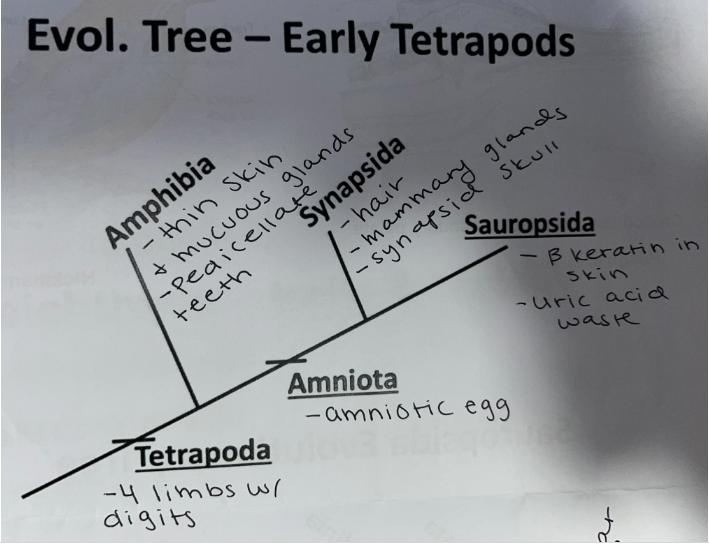 Evol. Tree – Early Tetrapods
Amphibia
- thin skin
+ mucuous glands
- pedicellate
teeth
Synapsida
- hair
- mammary glands
- synapsid skull
Sauropsida
- β keratin in
skin
- uric acid
waste
Amniota
- amniotic egg
Tetrapoda
- 4 limbs w/
digits